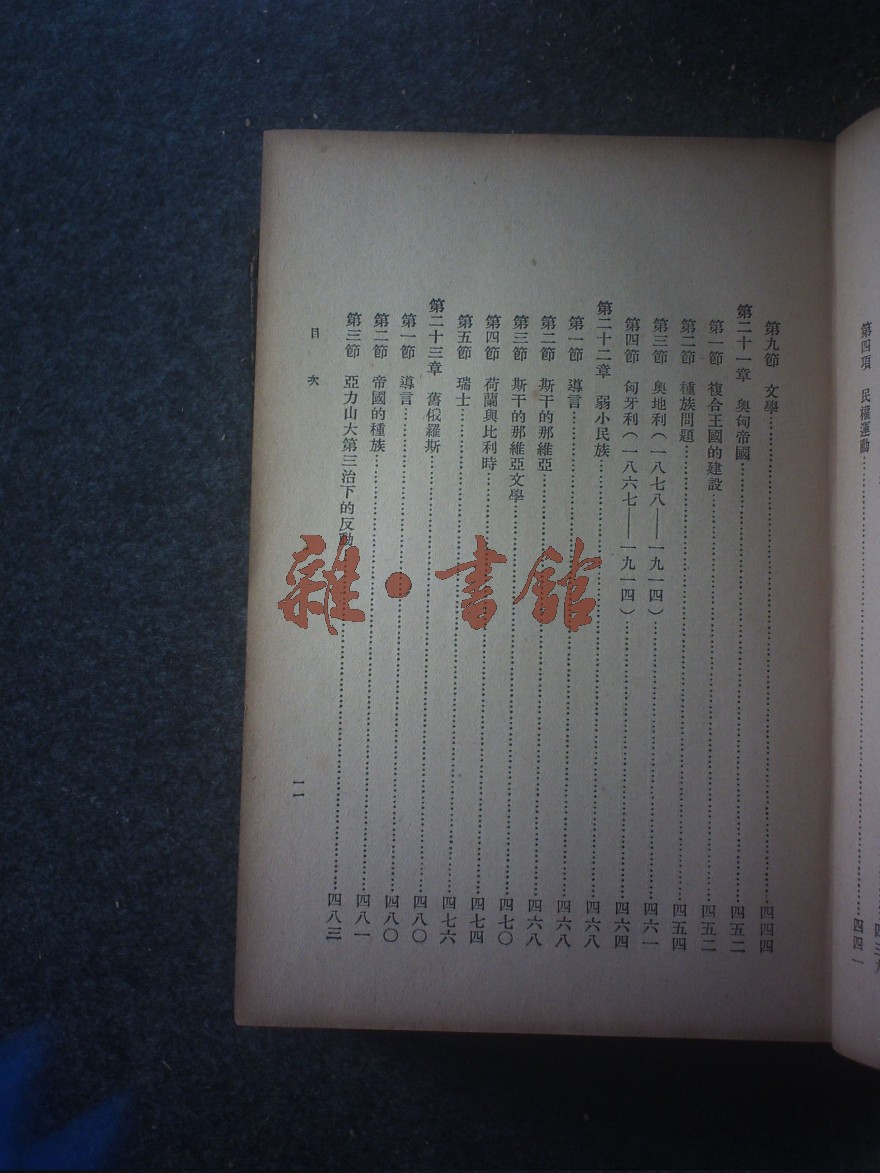 第四項　民權運動……四四一
第九節　文學……四四四
第二十一章　奧匈帝國……四五二
第一節　複合王國的建設……四五二
第二節　種族問題……四五四
第三節　奧地利（一八七八——一九一四）……四六一
第四節　匈牙利（一八六七——一九一四）……四六四
第二十二章　弱小民族……四六八
第一節　導言……四六八
第二節　斯干的那維亞……四六八
第三節　斯干的那維亞文學……四七〇
第四節　荷蘭與比利時……四七四
第五節　瑞士……四七六
第二十三章　舊俄羅斯……四八〇
第一節　導言……四八〇
第二節　帝國的種族……四八一
第三節　亞力山大第三治下的反動……四八三
目次
一一
雜·書館